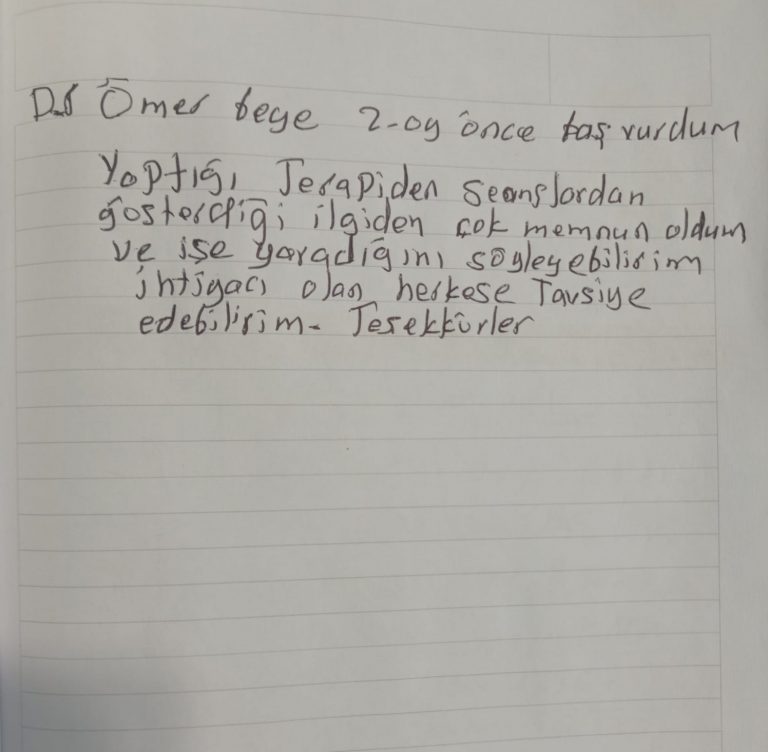 Dr Ömer beye 2-ay önce baş vurdum
Yaptığı Terapiden seanslardan
gösterdiği ilgiden çok memnun oldum
ve işe yaradığını söyleyebilirim
ihtiyacı olan herkese Tavsiye
edebilirim- Teşekkürler